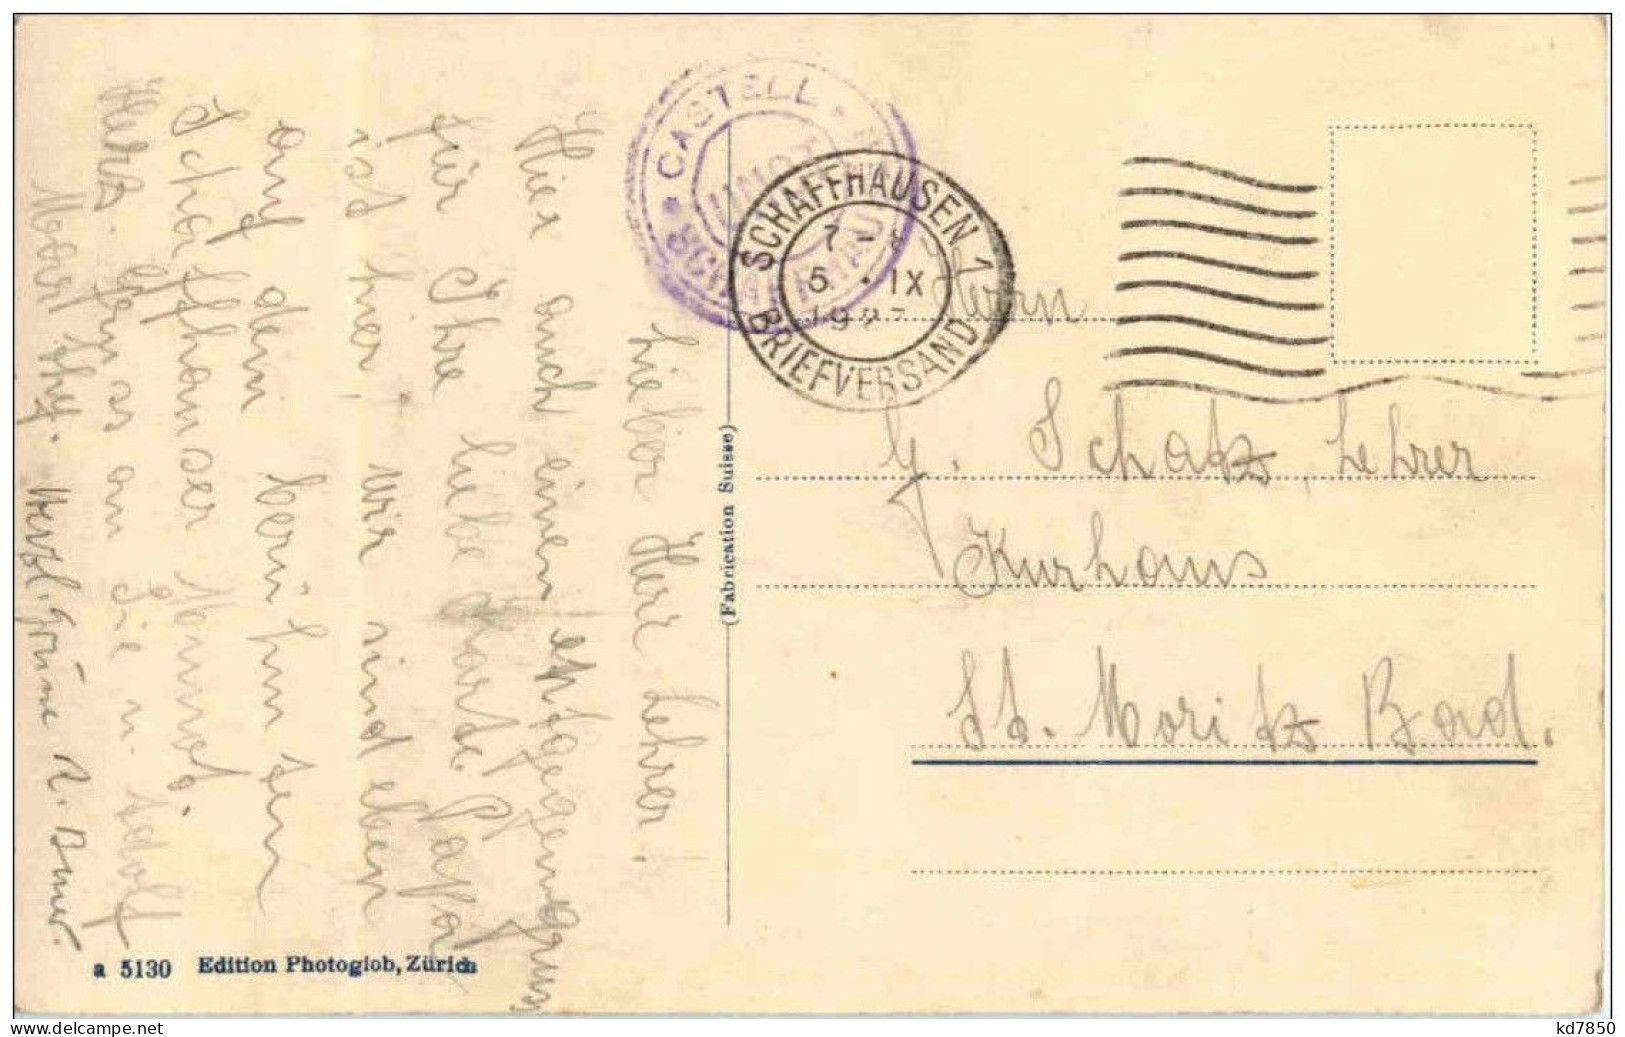 Lieber Herr Lehrer!
Hier auch einen entgegengruss
für Ihre liebe Karte. Papa
ist hier, wir sind eben
auf dem berühmten
Schaffhauser Munnot.
Herz. Gruss an Sie u. Adolf
Herzl. Grüsse
(Fabrication Suisse)
a 5130 Edition Photoglob, Zürich
CASTELL
SCHAFFHAUSEN 1
7-
5 . IX
BRIEFVERSAND
Herrn
G. Schatz, Lehrer
Kurhaus
St. Moritz Bad.
www.delcampe.net
kd7850